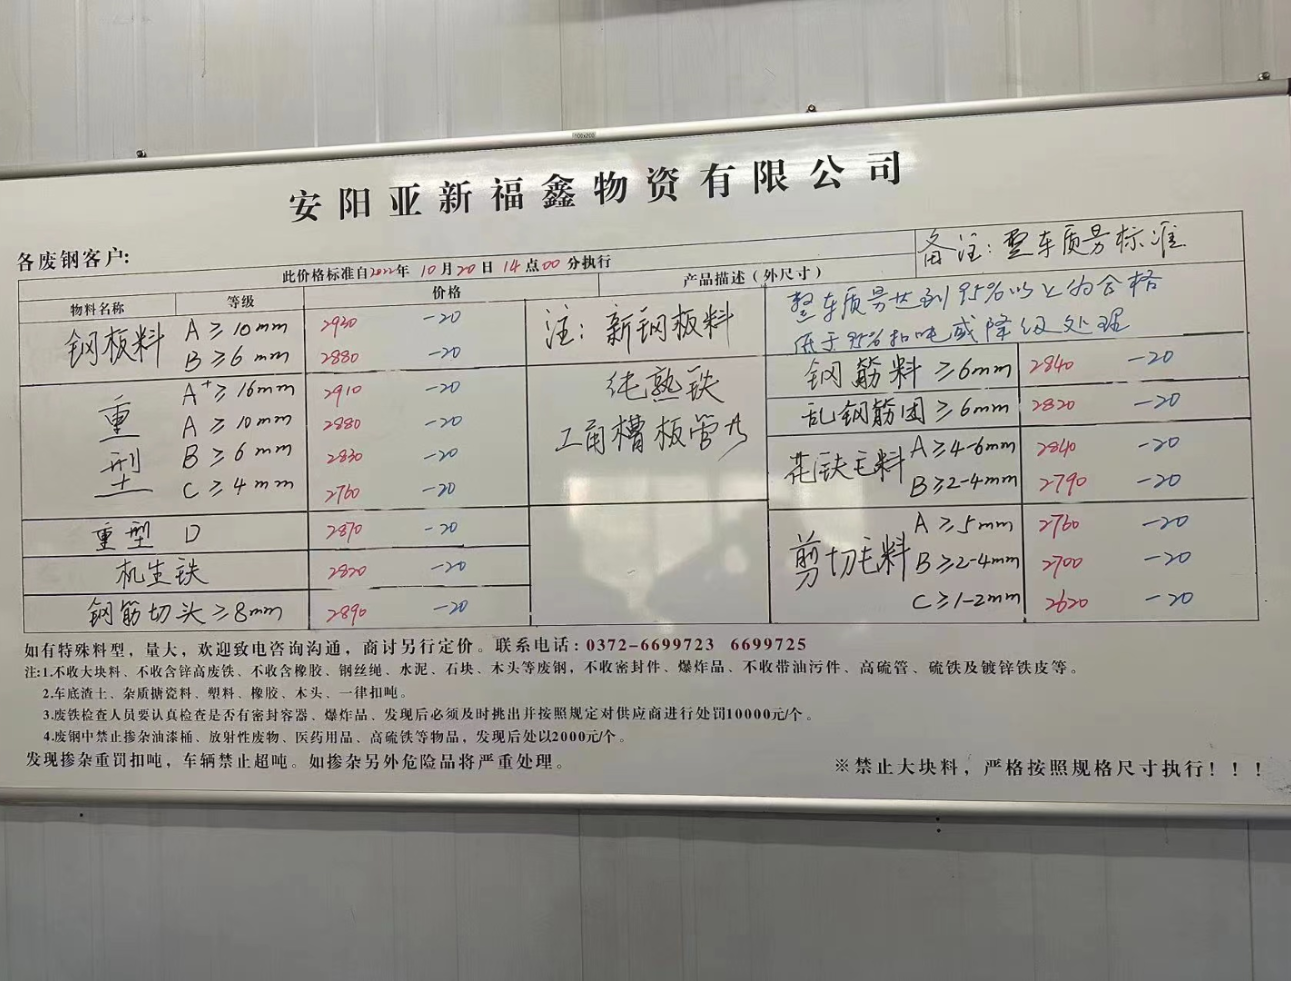 安阳亚新福鑫物资有限公司
各废钢客户:
此价格标准自2022年 10月20日 14点00分执行
备注:整车质易标准
物料名称 等级 价格 产品描述(外尺寸)
钢板料 A≥10mm 2930 -20
B≥6mm 2880 -20
重型 A⁺≥16mm 2910 -20
A≥10mm 2880 -20
B≥6mm 2830 -20
C≥4mm 2760 -20
重型 D 2870 -20
机生铁 2820 -20
钢筋切头≥8mm 2890 -20
注:新钢板料
纯熟铁
工角槽板管
整车质易达到95%以上为合格
低于95%扣吨或降级处理
钢筋料≥6mm 2840 -20
乱钢筋团≥6mm 2820 -20
花铁毛料 A≥4-6mm 2840 -20
B≥2-4mm 2790 -20
剪切毛料 A≥5mm 2760 -20
B≥2-4mm 2700 -20
C≥1-2mm 2620 -20
如有特殊料型,量大,欢迎致电咨询沟通,商讨另行定价。联系电话:0372-6699723 6699725
注:1.不收大块料、不收含锌高废铁、不收含橡胶、钢丝绳、水泥、石块、木头等废钢,不收密封件、爆炸品、不收带油污件、高硫管、硫铁及镀锌铁皮等。
2.车底渣土、杂质搪瓷料、塑料、橡胶、木头、一律扣吨。
3.废铁检查人员要认真检查是否有密封容器、爆炸品、发现后必须及时挑出并按照规定对供应商进行处罚10000元/个。
4.废钢中禁止掺杂油漆桶、放射性废物、医药用品、高硫铁等物品,发现后处以2000元/个。
发现掺杂重罚扣吨,车辆禁止超吨。如掺杂另外危险品将严重处理。
※禁止大块料,严格按照规格尺寸执行!!!